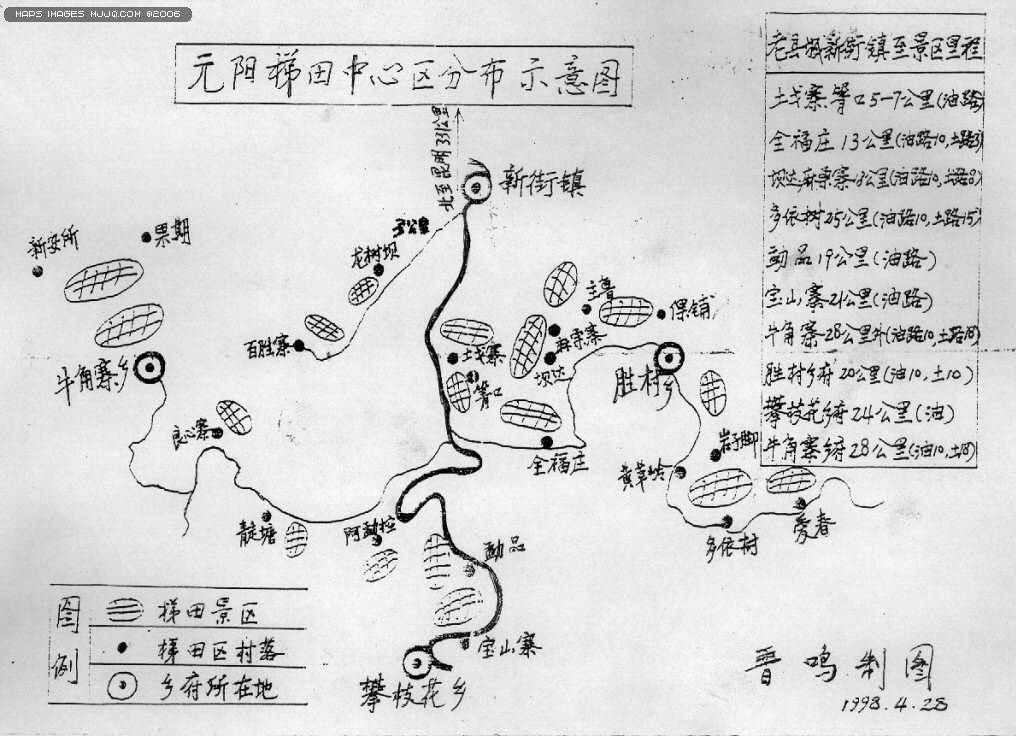 MAPS IMAGES MJJQ.COM ©2006
元阳梯田中心区分布示意图
老县城新街镇至景区里程
土戈寨箐口5-7公里(油路)
全福庄13公里(油路10,土路3)
坝达麻栗寨公里(油路10,土路8)
多依树25公里(油路10,土路15)
勐品19公里(油路)
宝山寨21公里(油路)
牛角寨28公里外(油路10,土路18)
胜村乡府20公里(油10,土10)
攀枝花乡府24公里(油)
牛角寨乡府28公里(油10,土18)
北至昆明331公里
新街镇
新安所
果期
龙树坝
百胜寨
牛角寨乡
良心寨
主鲁
保铺
麻栗寨
坝达
土戈寨
箐口
胜村乡
全福庄
岩子脚
黄草岭
多依村
爱春
阿勐控
勐品
宝山寨
攀枝花乡
图例
梯田景区
梯田区村落
乡府所在地
晋鸣制图
1998.4.28